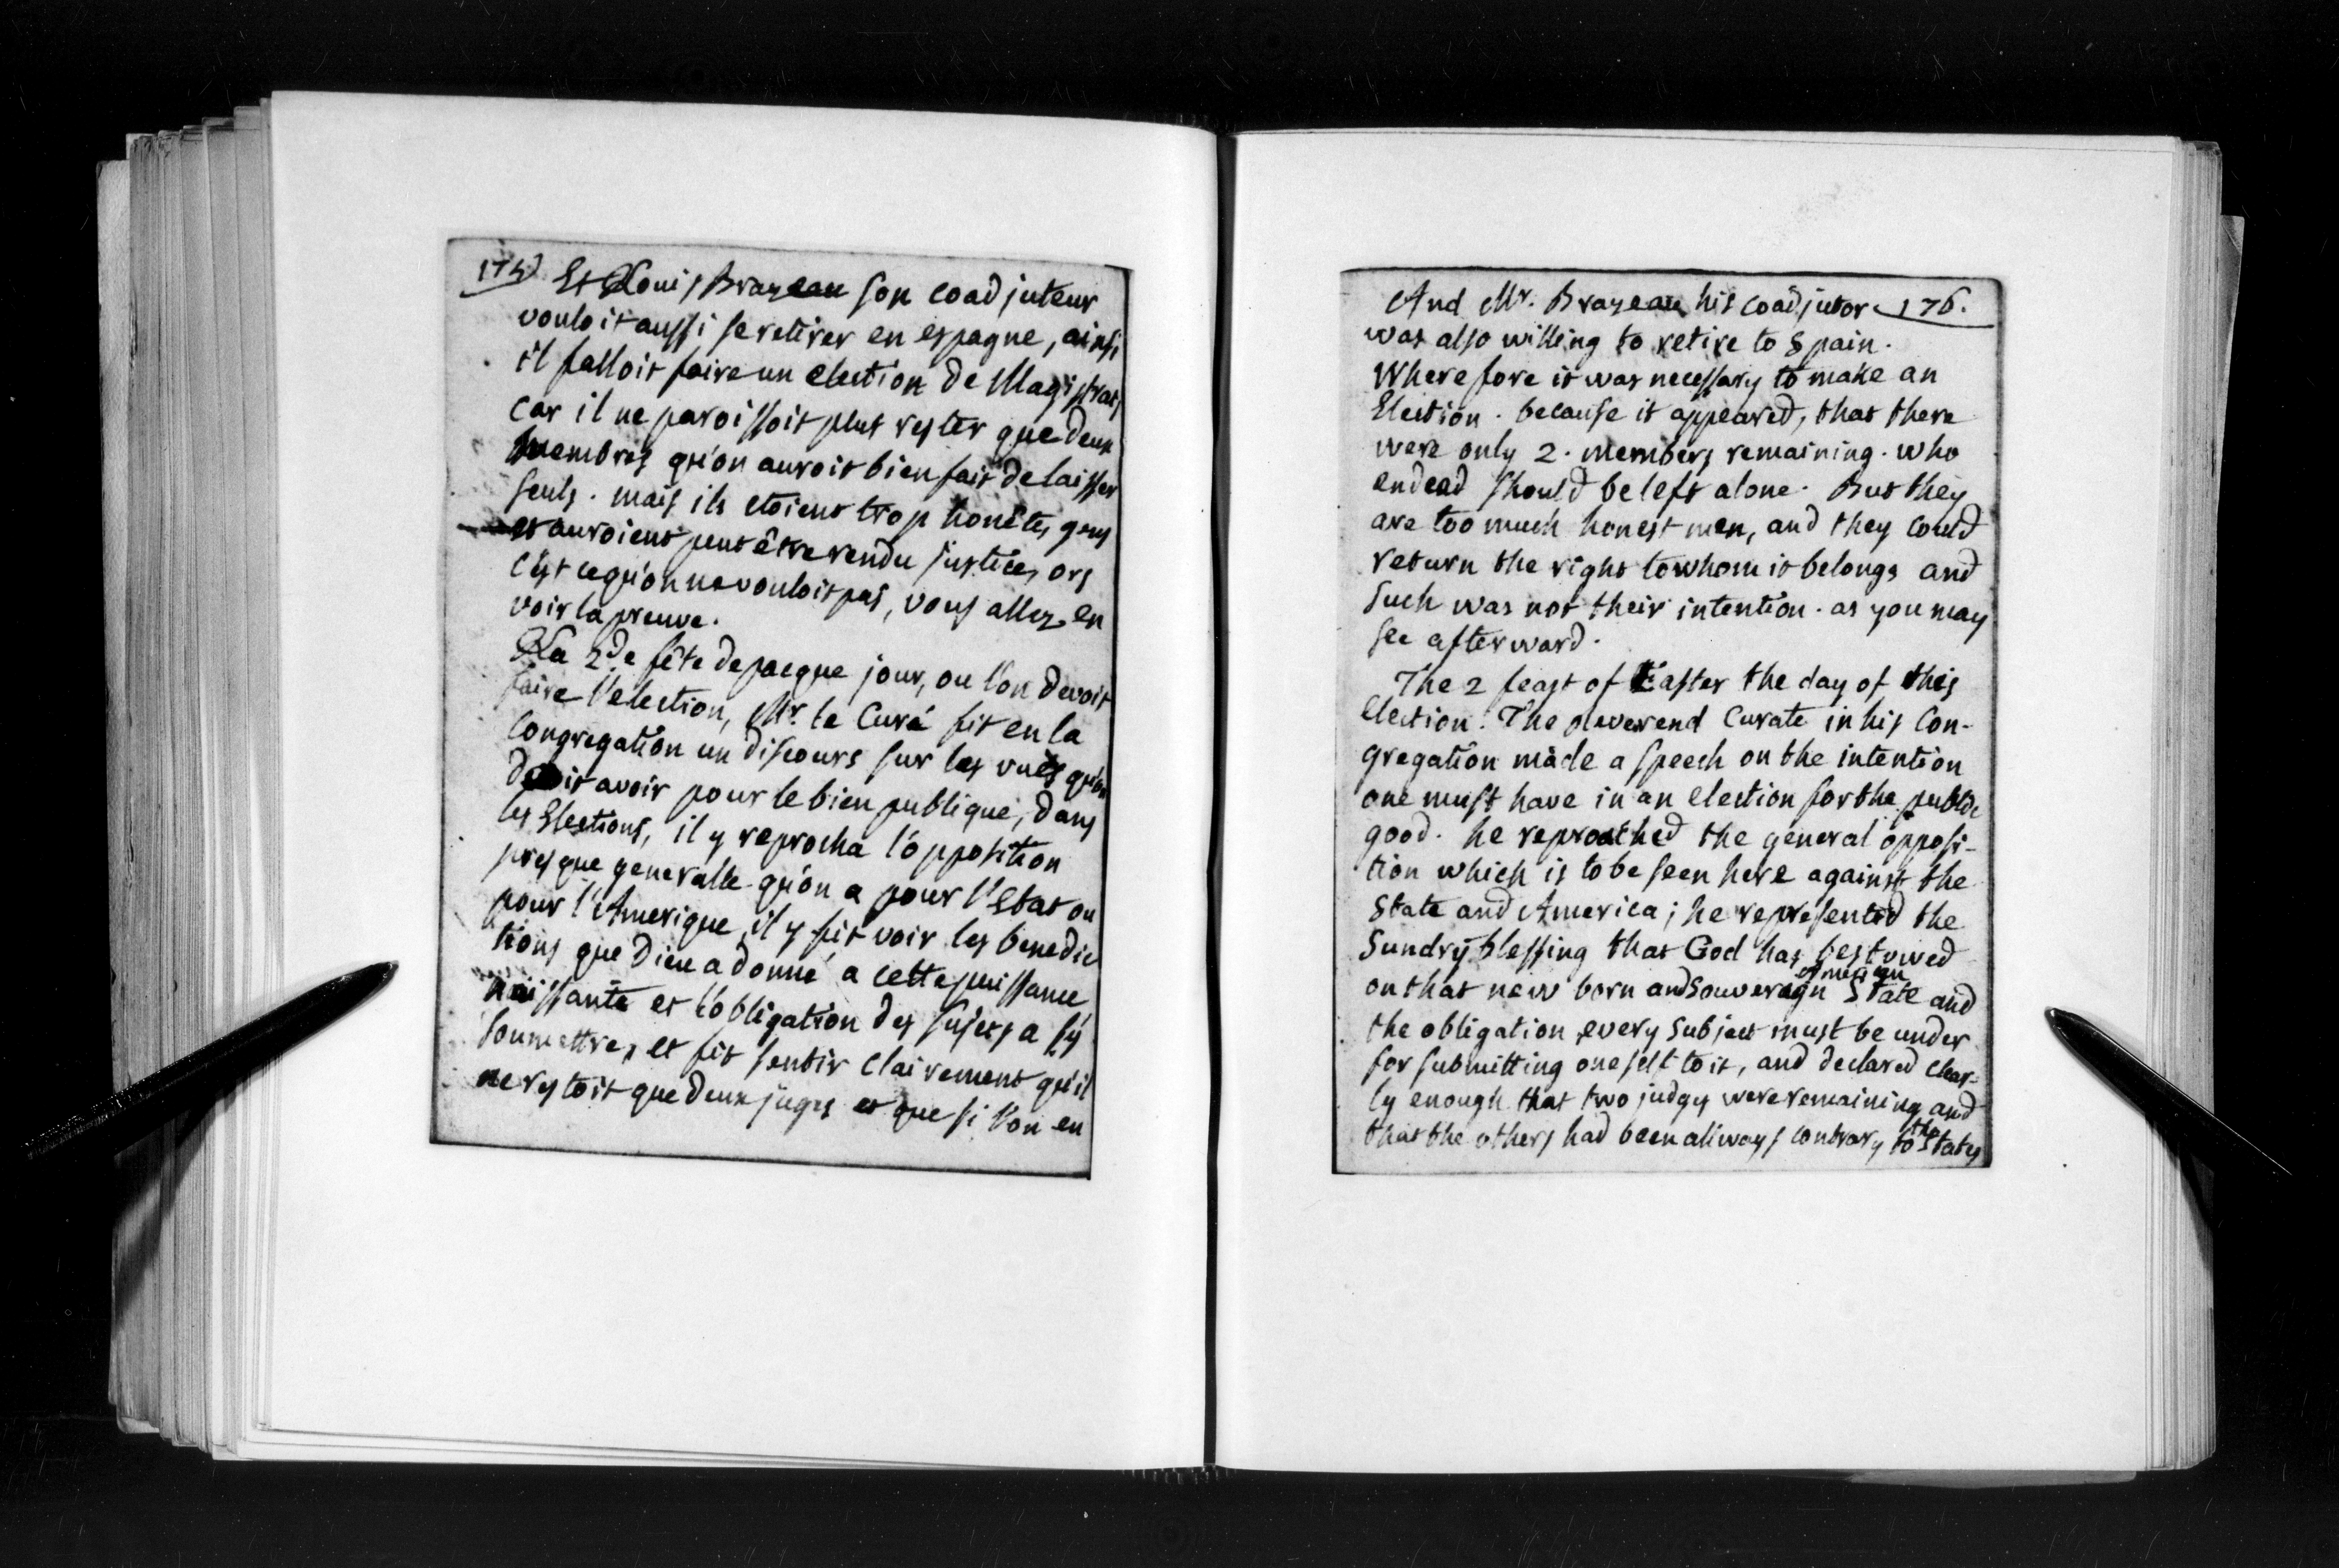 175
Et Louis Brazeau son coadjuteur
vouloit aussi se retirer en espagne, ainsi
il falloit faire un election de Magistrats
car il ne paroissoit plus rester que deux
membres qu'on auroit bien fait de laisser
seuls. mais ils etoient trop honêtes gens
et auroient peut être rendu justice, ors
c'est ce qu'on ne vouloit pas, vous allez en
voir la preuve.
La 2de fête de pacque jour, ou l'on devoit
faire l'election, Mr. le Curé fit en la
Congregation un discours sur les vues qu'on
devoit avoir pour le bien publique, dans
les Elections, il y reprocha l'opposition
presque generalle qu'on a pour l'Etat ou
pour l'Amerique, il y fit voir les benedic
tions que Dieu a donné a cette puissance
naissante et l'obligation des sujets a s'y
soumettre, et fit sentir clairement qu'il
ne restoit que deux juges et que si l'on en
And Mr. Brazeau his coadjutor 176.
was also willing to retire to Spain.
Wherefore it was necessary to make an
Election. because it appeared, that there
were only 2. members remaining. who
endead should be left alone. But they
are too much honest men, and they could
return the right to whom it belongs and
such was not their intention. as you may
see afterward.
The 2 feast of Easter the day of this
election. The reverend Curate in his Con-
gregation made a speech on the intention
one must have in an election for the public
good. he reproached the general opposi-
tion which is to be seen here against the
State and America; he represented the
Sundry blessing that God has bestowed
on that new born and souveraign American State and
the obligation every subject must be under
for submitting oneself to it, and declared clear-
ly enough that two judges were remaining and
that the others had been allways contrary to the States